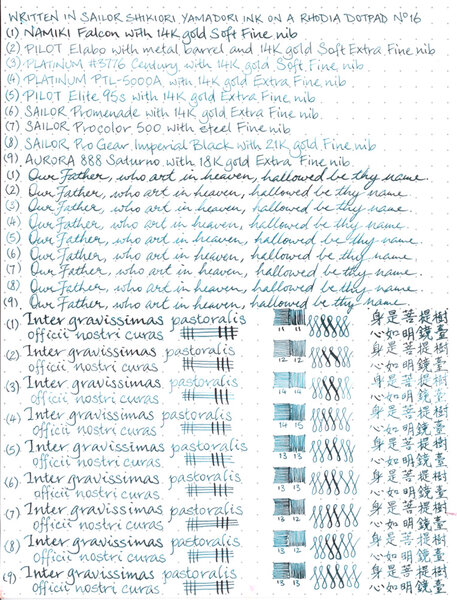 WRITTEN IN SAILOR SHIKIORI YAMADORI INK ON A RHODIA DOTPAD Nº16
(1) NAMIKI Falcon with 14K gold Soft Fine nib
(2) PILOT Elabo with metal barrel and 14K gold Soft Extra Fine nib
(3) PLATINUM #3776 Century with 14K gold Soft Fine nib
(4) PLATINUM PTL-5000A with 14K gold Extra Fine nib
(5) PILOT Elite 95s with 14K gold Extra Fine nib
(6) SAILOR Promenade with 14K gold Extra Fine nib
(7) SAILOR Procolor 500 with steel Fine nib
(8) SAILOR Pro Gear Imperial Black with 21K gold Fine nib
(9) AURORA 888 Saturno with 18K gold Extra Fine nib.
(1) Our Father, who art in heaven, hallowed be thy name.
(2) Our Father, who art in heaven, hallowed be thy name.
(3) Our Father, who art in heaven, hallowed be thy name.
(4) Our Father, who art in heaven, hallowed be thy name.
(5) Our Father, who art in heaven, hallowed be thy name.
(6) Our Father, who art in heaven, hallowed be thy name.
(7) Our Father, who art in heaven, hallowed be thy name.
(8) Our Father, who art in heaven, hallowed be thy name.
(9) Our Father, who art in heaven, hallowed be thy name.
(1) Inter gravissimas pastoralis 身是菩提樹
officii nostri curas 11 11 心如明鏡臺
(2) Inter gravissimas pastoralis 身是菩提樹
officii nostri curas 12 12 心如明鏡臺
(3) Inter gravissimas pastoralis 身是菩提樹
officii nostri curas 14 14 心如明鏡臺
(4) Inter gravissimas pastoralis 身是菩提樹
officii nostri curas. 14 15 心如明鏡臺
(5) Inter gravissimas pastoralis 身是菩提樹
officii nostri curas. 13 13 心如明鏡臺
(6) Inter gravissimas pastoralis 身是菩提樹
officii nostri curas. 13 13 心如明鏡臺
(7) Inter gravissimas pastoralis 身是菩提樹
officii nostri curas. 13 12 心如明鏡臺
(8) Inter gravissimas pastoralis 身是菩提樹
officii nostri curas. 13 12 心如明鏡臺
(9) Inter gravissimas pastoralis 身是菩提樹
officii nostri curas. 13 13 心如明鏡臺